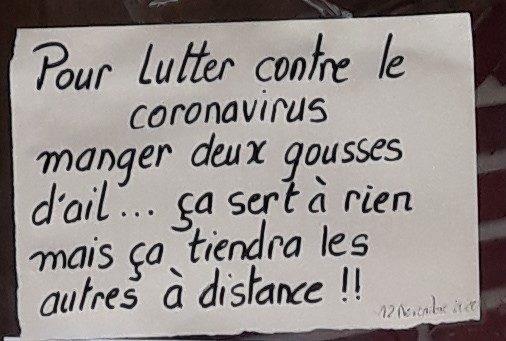 Pour lutter contre le
coronavirus
manger deux gousses
d'ail... ça sert à rien
mais ça tiendra les
autres à distance !!
12 Novembre